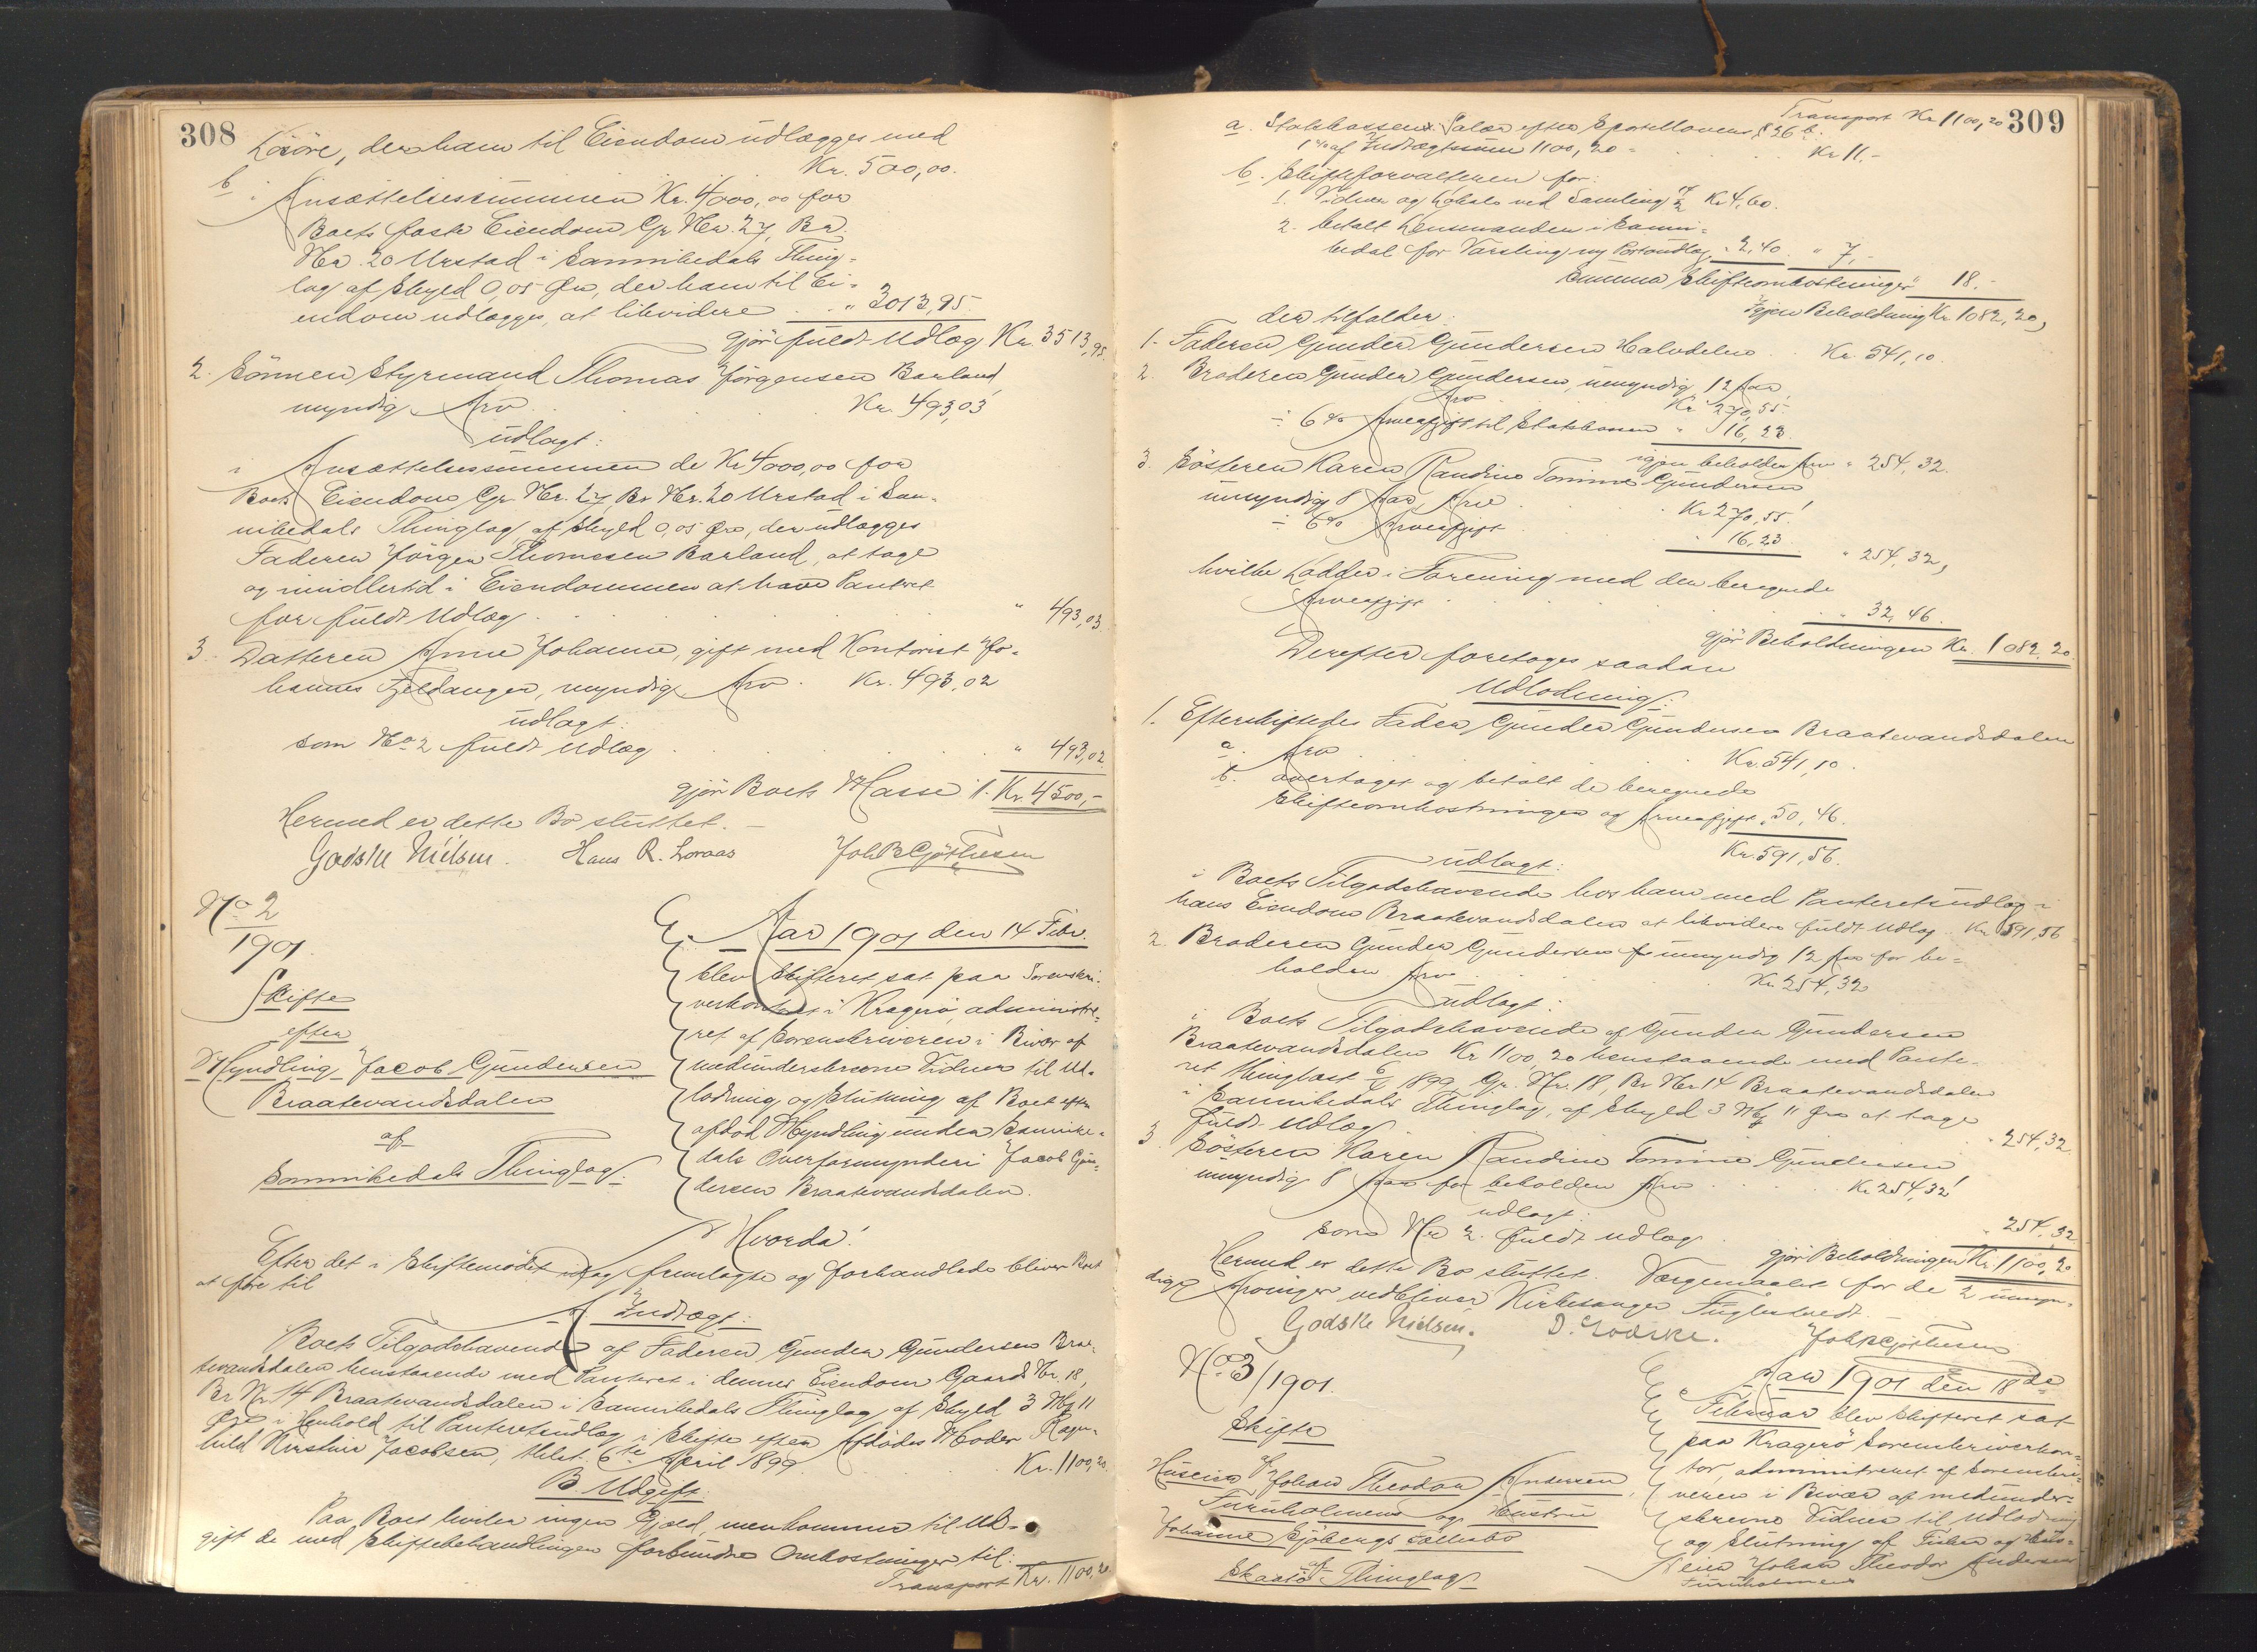 308
Løsøre, der ham til Eiendom udlægges med
Kr. 500,00.
b. i Ansættelsessummen Kr. 4000,00 for
Boets faste Eiendom Gr. Nr. 27, Br.
Nr. 20 Urstad i Sannikedals Thing-
lag af Skyld 0,05 Øre, der ham til Ei-
endom udlægges, at likvidere . . " 3013,95
gjør fuldt Udlæg Kr. 3513,95.
2. Sønnen Styrmand Thomas Jørgensen Barland,
myndig Arv . . . Kr. 493,03
udlagt:
i Ansættelsessummen de Kr. 4000,00 for
Boets Eiendom Gr. Nr. 27, Br. Nr. 20 Urstad i San-
nikedals Thinglag af Skyld 0,05 Øre, der udlægges
Faderen Jørgen Thomesen Barland, at tage
og imidlertid i Eiendommen at have Panteret
for fuldt Udlæg . . . " 493,03
3. Datteren Anne Johanne, gift med Kontorist Jo-
hannes Fjeldanger, myndig Arv . Kr. 493,02
udlagt:
som No 2 fuldt Udlæg . . . " 493,02
gjør Boets Masse Kr. 4500,-
Hermed er dette Bo sluttet. -
Godske Nielsen. Hans R. Loraas Joh B Gjøthesen
No 2
1901.
Skifte
efter
Myndling Jacob Gundersen
Braatevandsdalen
af
Sannikedals Thinglag.
Aar 1901 den 14 Febr.
blev Skifteret sat paa Sorenskri-
verkontoret i Kragerø, administre-
ret af Sorenskriveren i Bivær af
medunderskrevne Vidner til Ud-
lodning og Slutning af Boet efter
afdød Myndling under Sannike-
dals Overformynderi Jacob Gun-
dersen Braatevandsdalen.
Hvorda!
Efter det i Skiftemødet idag fremlagte og forhandlede bliver Boet
at føre til
A Indtægt:
Boets Tilgodehavende af Faderen Gunder Gundersen Braa-
tevandsdalen henstaaende med Panteret i dennes Eiendom Gaards Nr. 18,
Br. Nr. 14 Braatevandsdalen i Sannikedals Thinglag af Skyld 3 Mk 11
Øre i Henhold til Panteretsudlæg i Skifte efter Afdødes Moder Ragn-
hild Kirstine Jacobsen, thlst. 6te April 1899 . . . Kr. 1100,20.
B. Udgift:
Paa Boet hviler ingen Gjæld, men kommer til Ud-
gift de med Skiftebehandlingen forbundne Omkostninger til:
Transport Kr. 1100,20
309
Transport Kr 1100,20
a. Statskassens Salær efter Sportellovens § 26 b.
1 % af Indtægtssum 1100,20 = . . . Kr 11.-
b. Skifteforvalteren for:
1. Vidner og Lokale ved Samling Kr 4,60.
2. betalt Lensmanden i Sanni-
kedal for Varsling og Portoudlæg " 2,40 " 7,-
Summa Skifteomkostninger " 18.-
Igjen Beholdning Kr 1082,20,
der tilfalder:
1. Faderen Gunder Gundersen Halvdelen . . Kr. 541,10.
2. Broderen Gunder Gundersen, umyndig 12 Aar,
Arv . . . Kr. 270,55.
÷ 6 % Arveafgift til Statskassen " 16,23.
igjen beholden Arv " 254,32.
3. Søsteren Karen Randine Tomine Gundersen
umyndig 8 Aar, Arv . . . Kr 270,55!
÷ 6 % Arveafgift . . . " 16,23.
" 254,32,
hvilke Lodder i Forening med den beregnede
Arveafgift . . . " 32,46.
gjør Beholdningen Kr. 1082,20.
Derefter foretoges saadan
Udlodning:
1. Efterskiftedes Fader, Gunder Gundersen Braatevandsdalen
a. Arv . . . Kr. 541,10.
b. overtaget og betalt de beregnede
Skifteomkostninger og Arveafgift " 50,46.
Kr. 591,56.
udlagt:
i Boets Tilgodehavende hos ham med Panteretsudlæg i
hans Eiendom Braatevandsdalen at likvidere fuldt Udlæg Kr 591,56
2. Broderen Gunder Gundersen umyndig 12 Aar for be-
holden Arv . . . Kr. 254,32
udlagt:
i Boets Tilgodehavende af Gunder Gundersen
Braatevandsdalen Kr 1100,20 henstaaende med Pante-
ret thinglæst 6/4 1899, Gr. Nr. 18, Br Nr 14 Braatevandsdalen
i Sannikedals Thinglag, af Skyld 3 Mk 11 Øre at tage
fuldt Udlæg . . . " 254,32
3. Søsteren Karen Randine Tomine Gundersen
umyndig 8 Aar for beholden Arv . . . Kr 254,32!
udlagt:
som No 2. fuldt udlæg . . . " 254,32
gjør Beholdningen Kr. 1100,20.
Hermed er dette Bo sluttet. Værgemaalet for de 2 umyn-
dige Arvinger vedbliver Kirkesanger Fuglestvedt.
Godske Nielsen. Joh B Gjøthesen
No 3/1901.
Skifte
Huseier Johan Theodor Andersen,
Furuholmens og Hustru
Johanne Sjøbergs Fællesbo
af
Skaatø Thinglag
Aar 1901 den 18de
Februar blev Skifteret sat
paa Kragerø Sorenskriverkon-
tor, administreret af Sorenskri-
veren i Bivær af medunder-
skrevne Vidner til Udlodning
og Slutning af Fisker og Hus-
eier Johan Theodor Andersen
Furuholmens